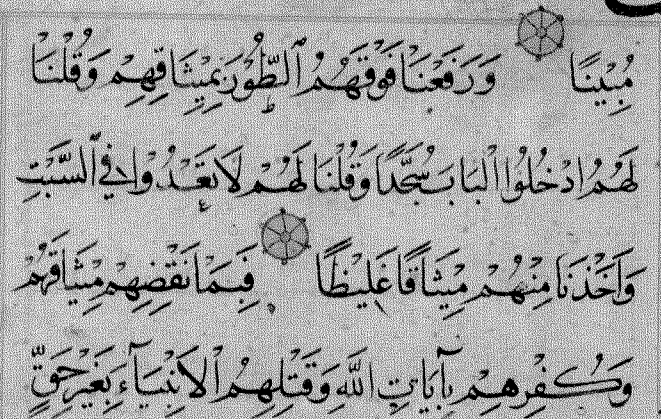 مُبِينًا وَرَفَعْنَا فَوْقَهُمُ الطُّورَ بِمِيثَاقِهِمْ وَقُلْنَا
لَهُمُ ادْخُلُوا الْبَابَ سُجَّدًا وَقُلْنَا لَهُمْ لَا تَعْدُوا فِي السَّبْتِ
وَأَخَذْنَا مِنْهُمْ مِيثَاقًا غَلِيظًا فَبِمَا نَقْضِهِمْ مِيثَاقَهُمْ
وَكُفْرِهِمْ بِآيَاتِ اللَّهِ وَقَتْلِهِمُ الْأَنْبِيَاءَ بِغَيْرِ حَقٍّ